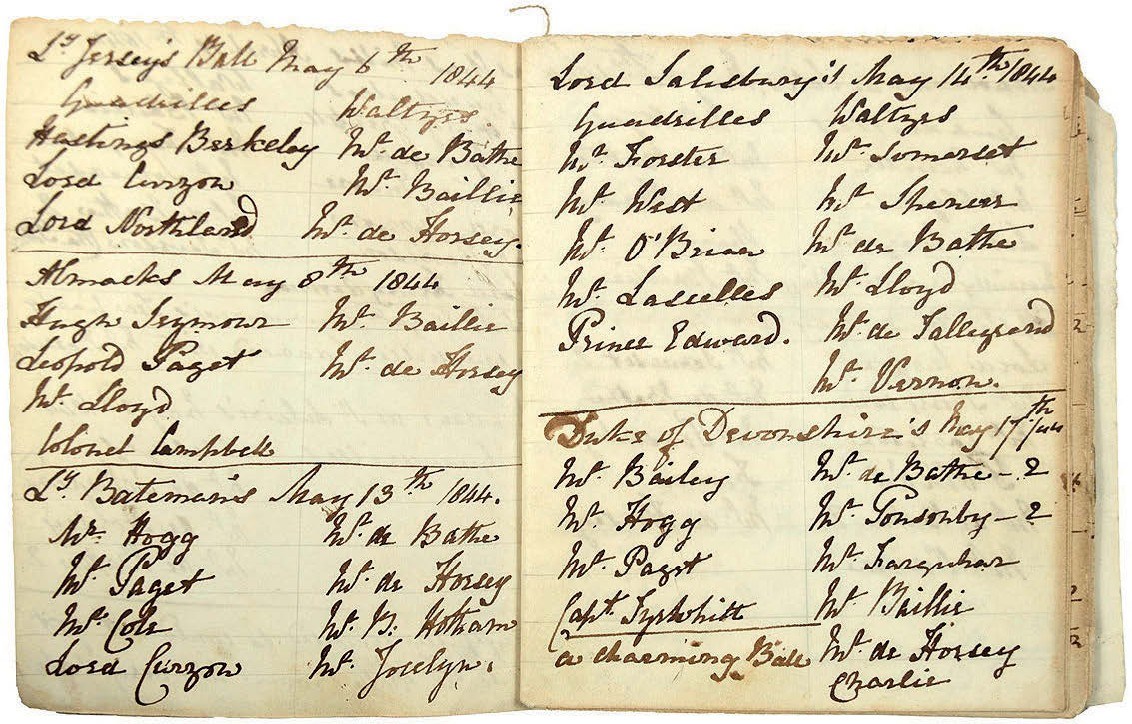 Ly Jersey's Ball May 6th 1844
Quadrilles Waltzes.
Hastings Berkeley Mr. de Bathe
Lord Curzon Mr. Baillie
Lord Northland Mr. de Horsey.
Almacks May 8th 1844
Hugh Seymour Mr. Baillie
Leopold Paget Mr. de Horsey
Mr. Lloyd
Colonel Campbell
Ly Bateman's May 13th 1844.
Mr. Hogg Mr. de Bathe
Mr. Paget Mr. de Horsey
Mr. Cole Mr. B. Hotham
Lord Curzon Mr. Jocelyn.
Lord Salisbury's May 14th 1844
Quadrilles Waltzes
Mr. Forster Mr. Somerset
Mr. West Mr. Spencer
Mr. O'Brien Mr. de Bathe
Mr. Lascelles Mr. Lloyd
Prince Edward. Mr. de Talleyrand
Mr. Vernon.
Duke of Devonshire's May 17th/44
Mr. Bailey Mr. de Bathe - 2
Mr. Hogg Mr. Ponsonby - 2
Mr. Paget Mr. Farquhar
Capt. Tyrwhitt Mr. Baillie
a charming Ball Mr. de Horsey
Charlie